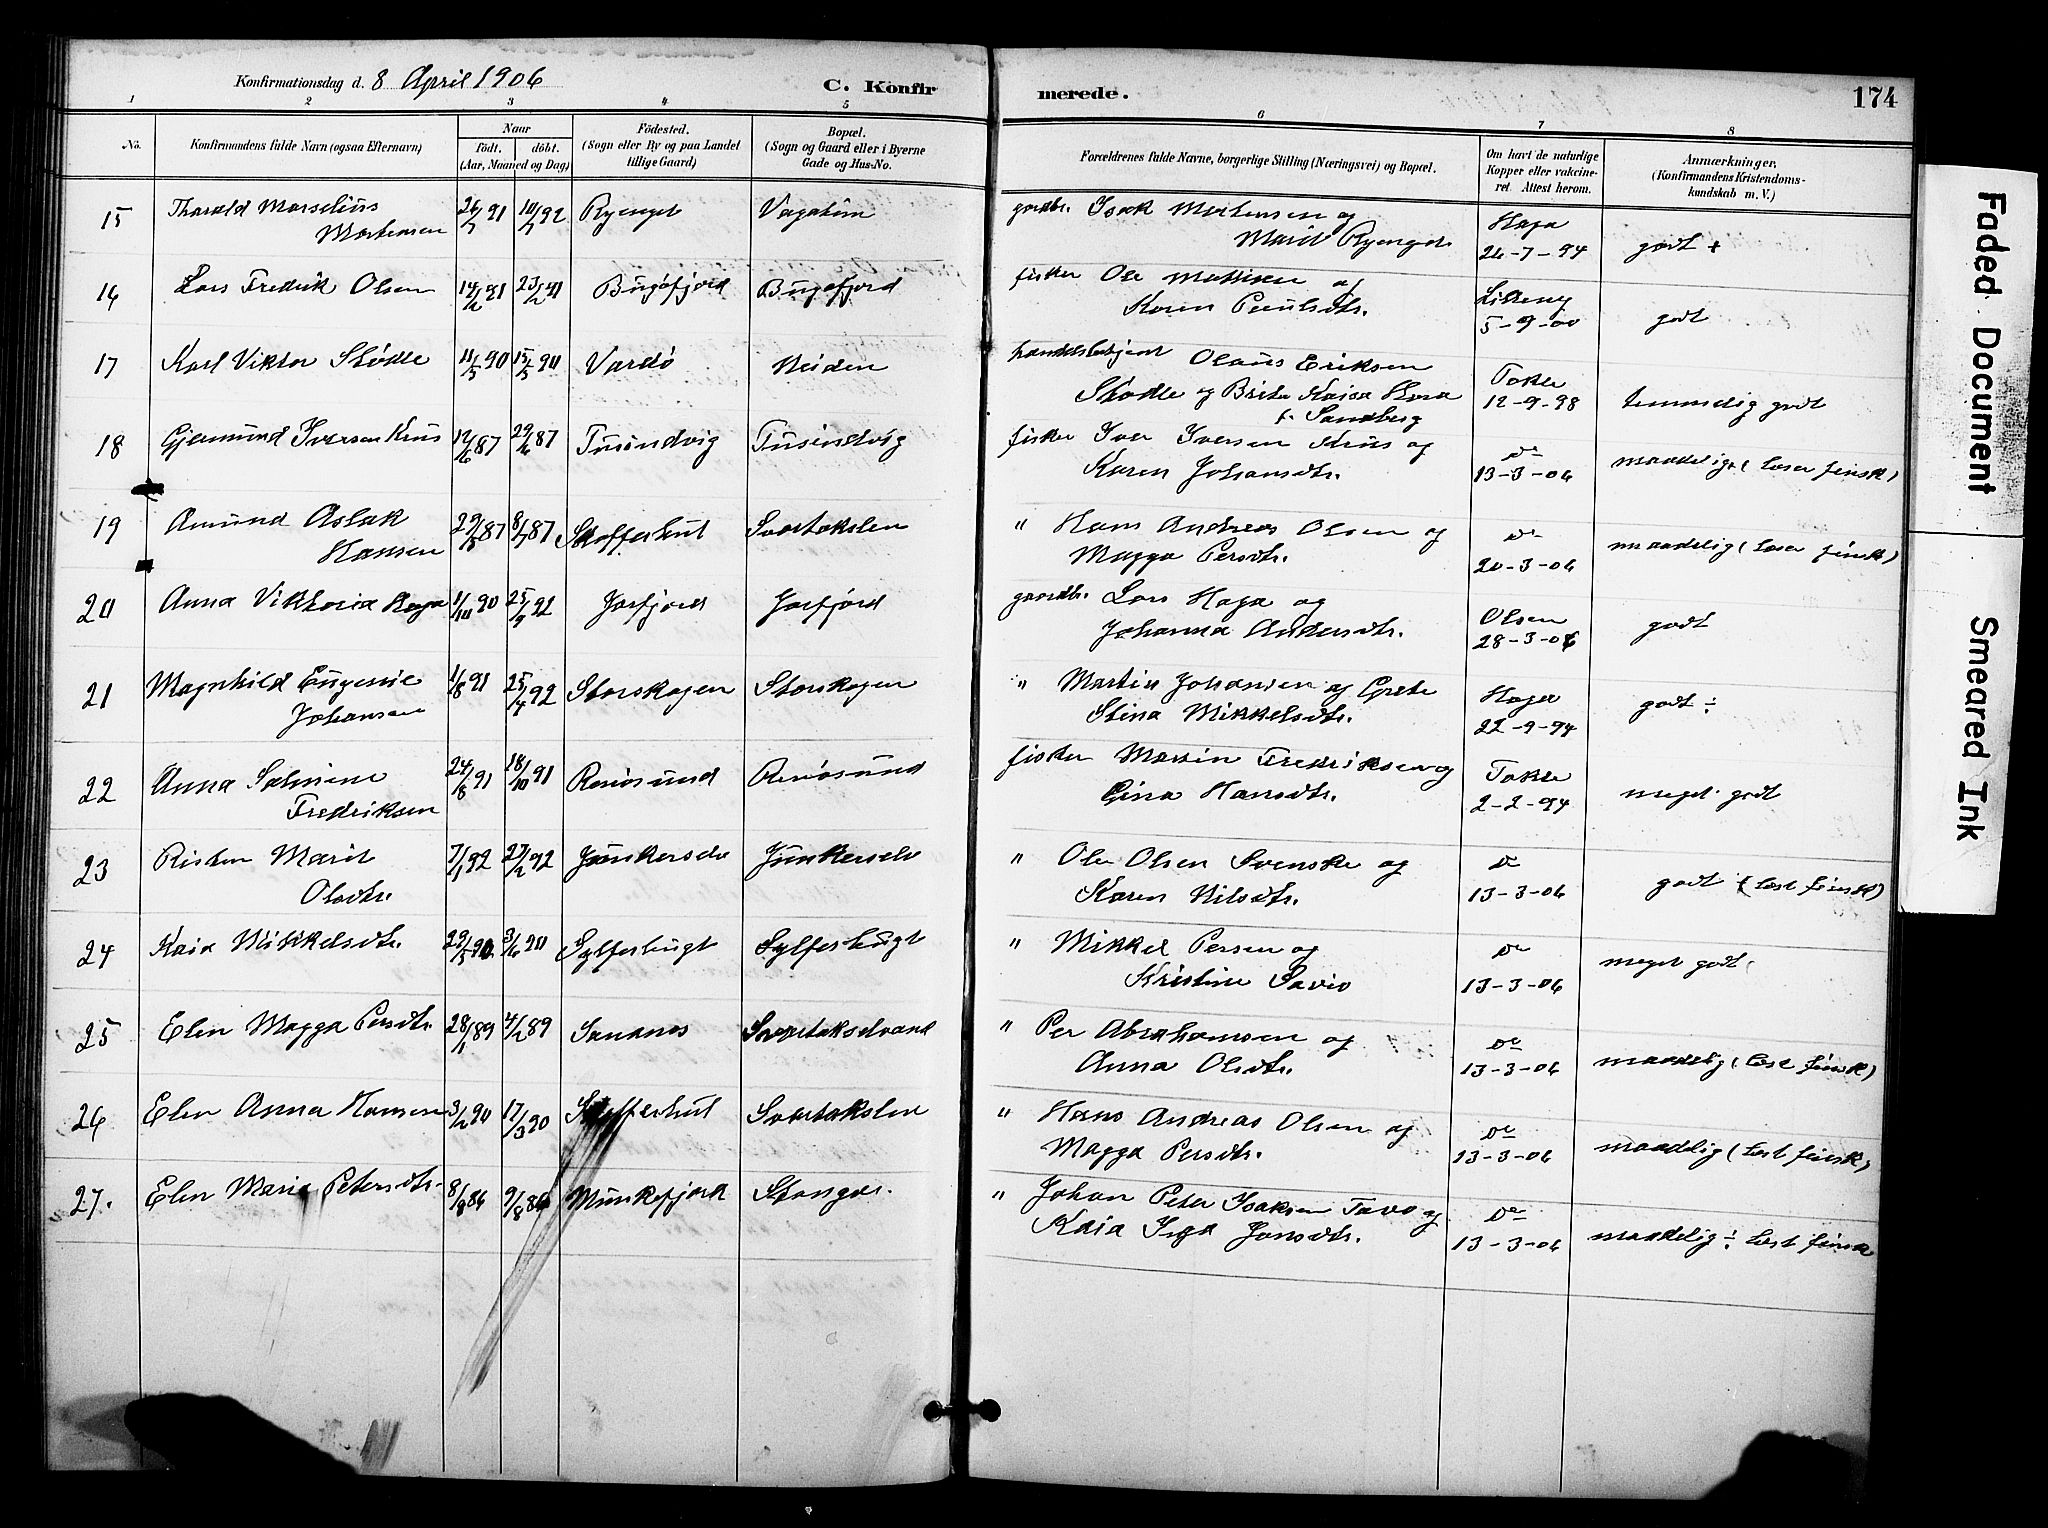 Konfirmationsdag d. 8 April 1906
C. Konfirmerede.
174
1 2 3 4 5 6 7 8
No.
Konfirmandens fulde Navn (ogsaa Efternavn)
Naar
födt. döbt.
(Aar, Maaned og Dag)
Födested.
(Sogn eller By og paa Landet
tillige Gaard)
Bopæl.
(Sogn og Gaard eller i Byerne
Gade og Hus-No.
Forældrenes fulde Navne, borgerlige Stilling (Næringsvei) og Bopæl.
Om havt de naturlige
Kopper eller vakcine-
ret. Attest herom.
Anmærkninger,
(Konfirmandens Kristendoms-
kundskab m. V.)
15 Tharald Marselius 26/7 91 10/7 92
Mortensen
gaardbr. Isak Mortensen og Haga
Marit 26-7-94 godt +
16 Lars Fredrik Olsen 14/2 91 23/2 91 Bugöfjord Bugöfjord
fisker Ole Mathisen og
Karen Paulsdtr. 5-9-00 godt
17 Karl Viktor Stödle 11/5 90 15/5 90 Vardö Neiden
handelsbetjent Olaus Eriksen
Stödle og Brita Kaisa Tokle
f. Sandberg 12-9-98 temmelig godt
18 Gjermund Iversen Krus 12/6 87 29/6 87 Tusindvig Tusindvig
fisker Iver Iversen Krus og do
Karen Johansdtr. 13-3-06 maadelig (læser finsk)
19 Amund Aslak 29/5 87 8/7 87 Svartakslen
Hansen
" Hans Andreas Olsen og do
Magga Persdtr. 20-3-06 maadelig (læser finsk)
20 Anna Viktoria Haga 11/10 90 25/9 92 Jarfjord Jarfjord
gaardbr. Lars Haga og Olsen
Johanna Andersdtr. 28-3-06 godt
21 Magnhild Eugenie 1/8 91 25/4 92 Storskogen Storskogen
Johansen
" Martin Johansen og Grete Haga
Stina Mikkelsdtr. 22-9-94 godt ÷
22 Anna Salmine 24/8 91 18/10 91 Renösund Renösund
Fredriksen
fisker Martin Fredriksen og Tokle
Gina Hansdtr. 2-2-94 meget godt
23 Risten Marit 7/1 92 27/2 92 Junkerselv Junkerselv
Olsdtr.
" Ole Olsen Svenske og do
Karen Nilsdtr. 13-3-06 godt (læst finsk)
24 Kaia Mikkelsdtr. 29/5 90 3/6 90 Sylferbugt Sylferbugt
" Mikkel Persen og do
Kristine Savio 13-3-06 meget godt
25 Elen Magga Persdtr. 28/1 89 4/2 89 Sandnes Svartakselvand
" Per Abrahamsen og do
Anna Olsdtr. 13-3-06 maadelig (læst finsk)
26 Elen Anna Hansen 3/2 90 17/3 90 Svartakslen
" Hans Andreas Olsen og do
Magga Persdtr. 13-3-06 maadelig (læst finsk)
27. Elen Marie Petersdtr. 8/8 86 9/8 86 Munkefjord
" Johan Peter Isaksen og do
Kaia Inga Jonsdtr. 13-3-06 maadelig ÷ læst finsk
Faded Document
Smeared Ink